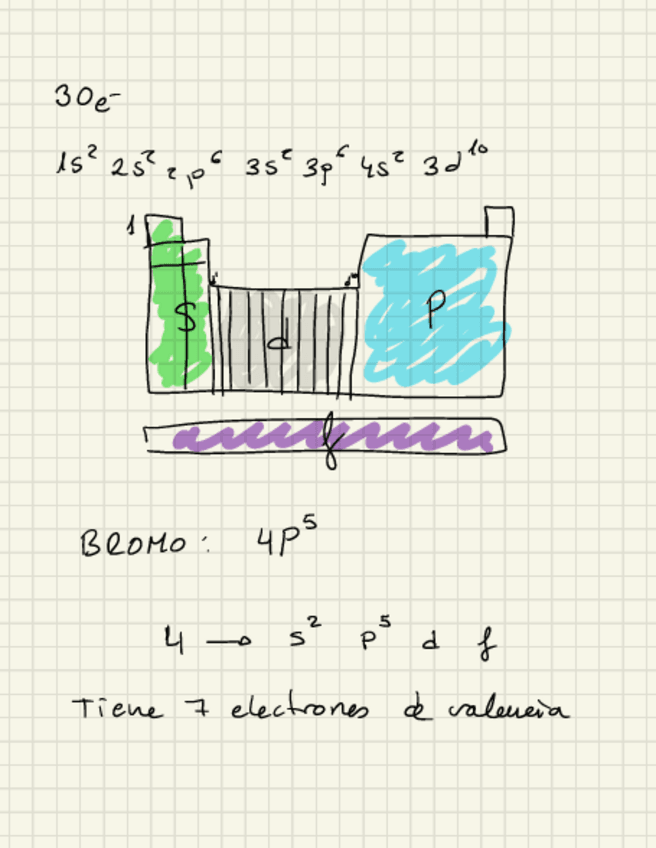 30e⁻
1s² 2s² 2p⁶ 3s² 3p⁶ 4s² 3d¹⁰
1
S d P
f
BROMO: 4P⁵
4 → s² p⁵ d f
Tiene 7 electrones de valencia